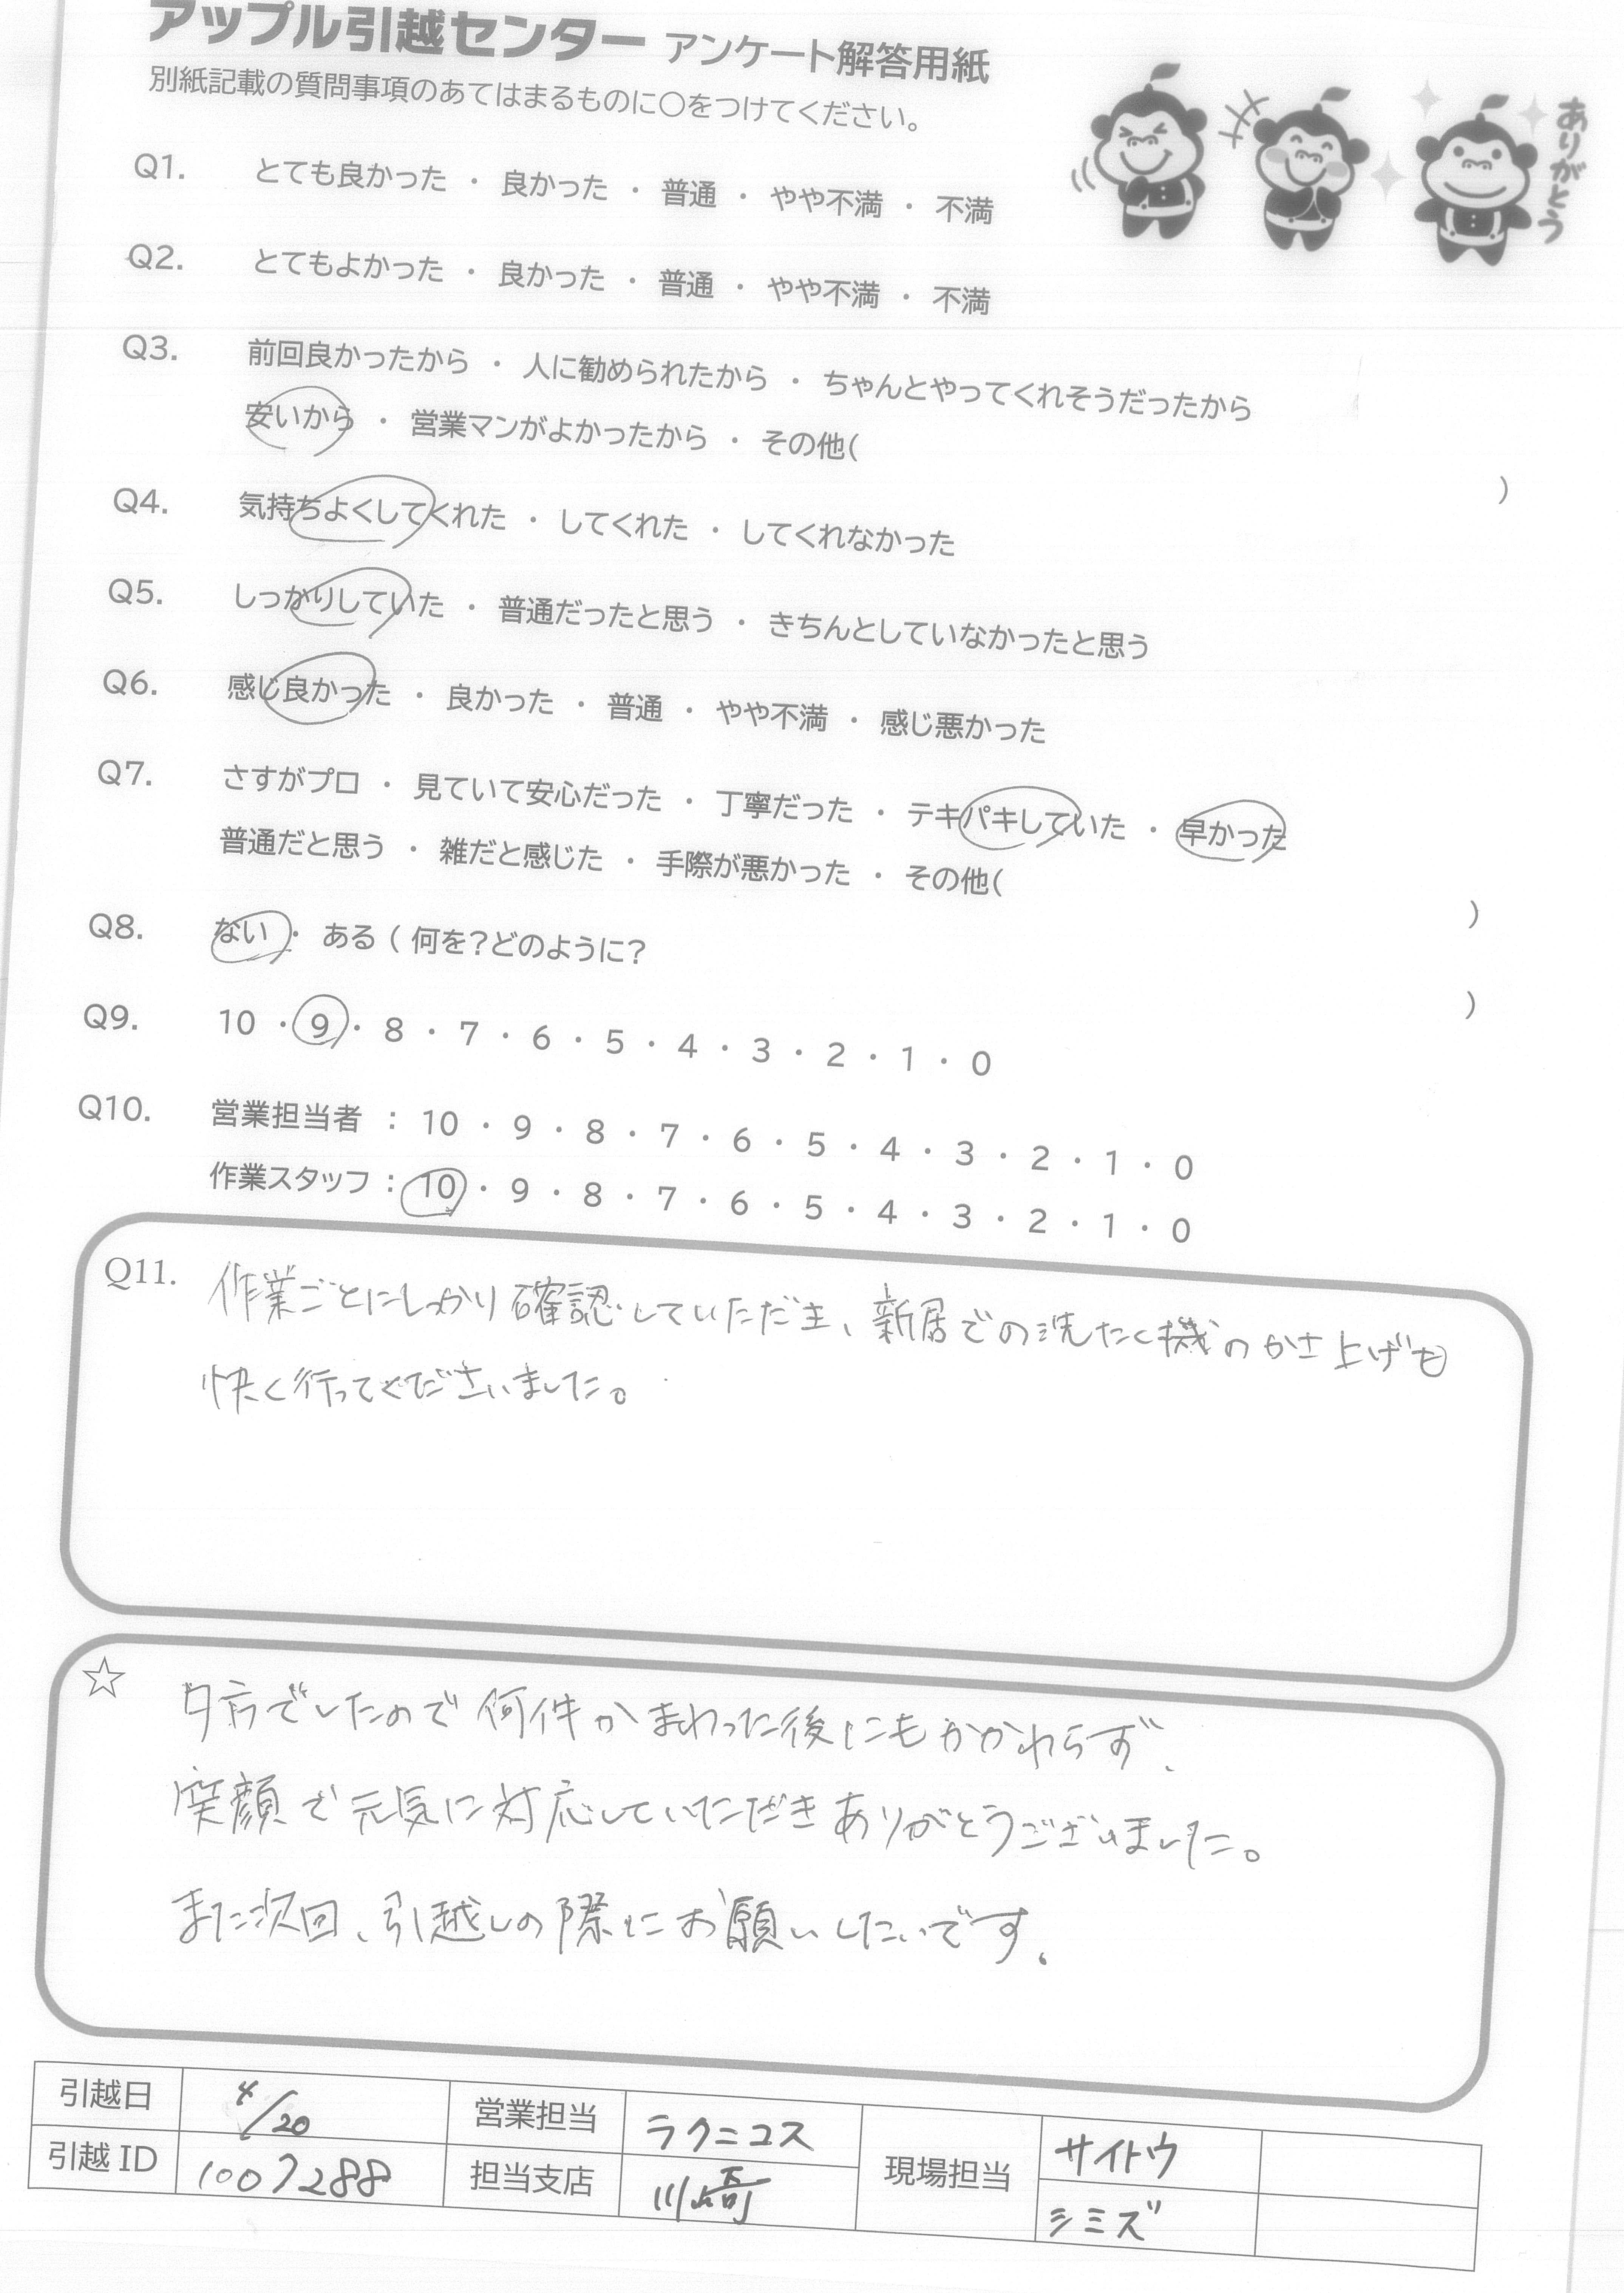 アップル引越センター アンケート解答用紙
別紙記載の質問事項のあてはまるものに〇をつけてください。
ありがとう
Q1. とても良かった ・ 良かった ・ 普通 ・ やや不満 ・ 不満
Q2. とてもよかった ・ 良かった ・ 普通 ・ やや不満 ・ 不満
Q3. 前回良かったから ・ 人に勧められたから ・ ちゃんとやってくれそうだったから
安いから ・ 営業マンがよかったから ・ その他( )
Q4. 気持ちよくしてくれた ・ してくれた ・ してくれなかった
Q5. しっかりしていた ・ 普通だったと思う ・ きちんとしていなかったと思う
Q6. 感じ良かった ・ 良かった ・ 普通 ・ やや不満 ・ 感じ悪かった
Q7. さすがプロ ・ 見ていて安心だった ・ 丁寧だった ・ テキパキしていた ・ 早かった
普通だと思う ・ 雑だと感じた ・ 手際が悪かった ・ その他( )
Q8. ない ・ ある ( 何を?どのように? )
Q9. 10 ・ 9 ・ 8 ・ 7 ・ 6 ・ 5 ・ 4 ・ 3 ・ 2 ・ 1 ・ 0
Q10. 営業担当者 : 10 ・ 9 ・ 8 ・ 7 ・ 6 ・ 5 ・ 4 ・ 3 ・ 2 ・ 1 ・ 0
作業スタッフ : 10 ・ 9 ・ 8 ・ 7 ・ 6 ・ 5 ・ 4 ・ 3 ・ 2 ・ 1 ・ 0
Q11. 作業ごとにしっかり確認していただき、新居での洗たく機のかさ上げも
快く行ってくださいました。
☆ 夕方でしたので何件かまわった後にもかかわらず、
笑顔で元気に対応していただきありがとうございました。
また次回、引越しの際にお願いしたいです。
引越日 4/20 営業担当 ラクニコス 現場担当 サイトウ
引越ID 1007288 担当支店 川崎 シミズ